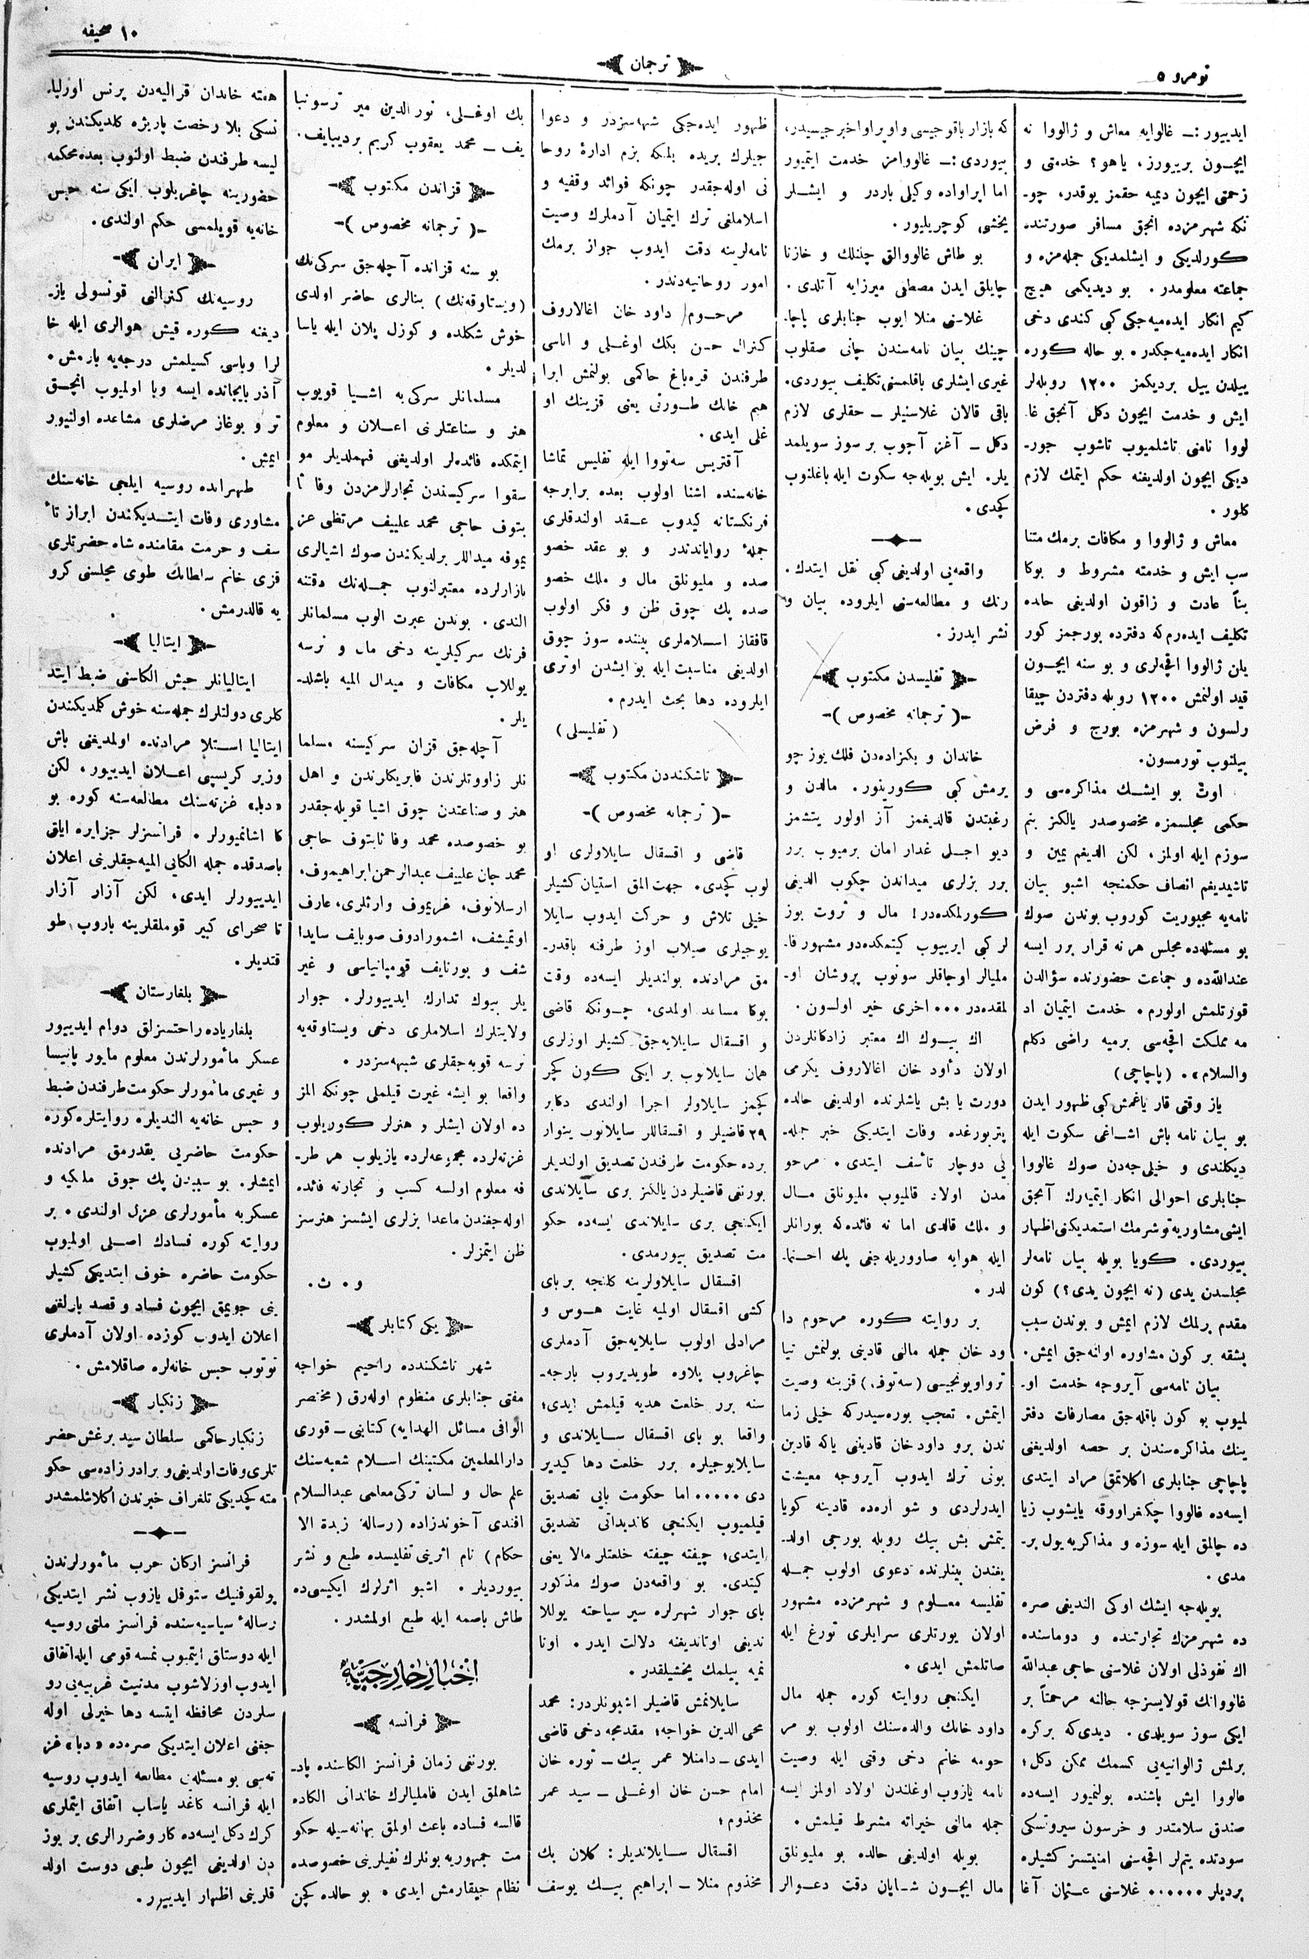 نومرو ٥
ترجمان
١٠ صحیفه
ایدییور:ـ غالوایه معاش و ژالووا نه
ایچـون بریبورز، یاهو؟ خدمتی و
زحمتی ایچون دیمیه حقمز یوقدر، چو۔
نکه شهرمزده انجق مسافر صورتنده
کورلدیکی و ایشلمدیکی جمله‌مزه و
جماعته معلومدر. بو دیدیکمی هیچ
کیم انکار ایده‌میه‌جکی کبی کندی دخی
انکار ایده‌میه‌جکدر. بو حاله کوره
ییلدن ییل بردیکمز ١٢٠٠ روبله‌لر
ایش و خدمت ایچون دکل آنجق غا۔
لووا نامی تاشلمیوب تاشوب جور۔
دیکی ایچون اولدیغنه حکم ایتمك لازم
کلور.
معاش و ژالووا و مکافات برمك متنا
سب ایش و خدمته مشروط و بوکا
بناً عادت و زاقون اولدیغی حاده
تکلیف ایده‌رم که دفترده بورجمز کور
یلن ژالووا اقچه‌لری و بو سنه ایچـون
قید اولنمش ١٢٠٠ روبله دفتردن چیقا
رلسون و شهرمزه بورج و قرض
بیلنوب تورمسون.
اوت بو ایشـك مذاکره‌سی و
حکمی مجلسمزه مخصوصدر یالکز بنم
سوزم ایله اولمز، لکن الدیغم یمین و
تاشیدیغم انصاف حکمنجه اشبو بیان
نامه‌یه مجبوریت کوروب بوندن صوك
بو مسئله‌ده مجلس هر نه قرار برر ایسه
عندالله‌ده و جماعت حضورنده سؤالدن
قوزتلمش اولورم. خدمت ایتمیان اد
مه مملکت اقچه‌سی برمیه راضی دکلم
والسلام». (پاچاچی)
یاز وقتی قار یاغمش کبی ظهور ایدن
بو بیان نامه باش اشـاغی سکوت ایله
دیکلندی و خیلی‌جه‌دن صوك غالووا
جنابلری احوالی انکار ایتمیه‌رك آنجق
ایشی مشاوریه توشرمك استمدیکنی اظهار
بیوردی. کویا بویله بیان نامه‌لر
مجلسدن یدی (نه ایچون یدی؟) کون
مقدم برلمك لازم ایمش و بوندن سبب
بشقه بر کون مشاوره اولنه‌جق ایمش.
بیان نامه‌سی آیروجه خدمت او۔
لمیوب بو کون باقله‌جق مصارفات دفتر
ینك مذاکره‌سندن بر حصه اولدیغنی
پاچاچی جنابلری اکلاتمق مراد ایتدی
ایسه‌ده غالووا چکغراووقه یاپشوب زیا
ده چالمق ایله سوزه و مذاکریه یول بر۔
مدی.
بویله‌جه ایشك اوکی الندیغی صره
ده شهرمزك تجارتنده و دوماسنده
اك نفوذلی اولان غلاسنی حاجی عبدالله
غالووانك قولایسزجه حالنه مرحمتاً بر
ایکی سوز سویلدی. دیدی که برکره
برلمش ژالوانیه‌یی کسمك ممکن دکل؛
غالووا ایش باشنده بولنمیور ایسه‌ده
صندق سلامتدر و خرسون سیروتسکی
سودنده یتملر اقچه‌سی امنیتسز کشیلره
بردیلر ...... غلاسنی عـثمان آغا
که بازار باقوجیسی و اوپراوا خبرجیسیدر،
بیوردی:ـ غالووامز خدمت ایتمیور
اما اپراواده وکیلی باردر و ایشـلر
یخشی کوچریلیور.
بو طاش غالووالق چتنلك و خازنا
چایلق ایدن مصطفی میرزایه آتلدی.
غلاسنی منلا ایوب جنابلری پاچا۔
چینك بیان نامه‌سندن جانی صقلوب
غیری ایشلری باقلمسنی تکلیف بیوردی.
باقی قالان غلاسنیلر ـ حقلری لازم
دکل ـ آغز آچوب بر سوز سویلمد
یلر. ایش بویله‌جه سکوت ایله باغلنوب
کچدی.
واقعه‌یی اولدیغی کبی نقل ایتدك.
رنك و مطالعه‌سنی ایلروده بیان و
نشر ایدرز.
تفلیسدن مکتوب
-( ترجمانه مخصوص )-
خاندان و بکزاده‌دن فلك یوز چو
یرمش کبی کورینور. مالدن و
رغبتدن قالدیغمز آز اولور یتشمز
دیو اجـلی غدار امان برمیوب برر
برر بزلری میداندن چکوب الدیغی
کورلمکده‌در! مال و ثروت بوز
لر کبی ایرییوب کیتمکده‌دو مشهور فا۔
ملیالر اوجاقلر سونوب پروشان او۔
لمقده‌در ... اخری خیر اولـون.
اك بیـوك اك معتبر زادکانلردن
اولان دأود خان اغالاروف یکرمی
دورت یا بش یاشلرنده اولدیغی حالده
پتربورغده وفات ایتدیکی خبر جمله۔
یی دوچار تأسف ایتدی. مرحو
مدن اولاد قالمیوب ملیونلق مـال
و ملك قالدی اما نه فائده که بورانلر
ایله هوایه صاوروریله‌جغی پك احتما۔
لدر.
بر روایته کوره مرحوم دا
ود خان جمله مالنی قادینی بولنمش تیا
ترواویونجیسی (سه‌توف) قزینه وصیت
ایتمش. تعجب بوره‌سیدر که خیلی زما
ندن برو داود خان قادینی یا که قادین
بونی ترك ایدوب آیروجه معیشت
ایدرلردی و شو اره‌ده قادینه کویا
یتمش بش بیك روبله بورجی اولد۔
یغندن بیتلرنده دعوی اولوب جمـله
تفلیسه معلـوم و شهرمزده مشهور
اولان یورتلری سرایلری تورغ ایله
صاتلمش ایدی.
ایکنجی روایته کوره جمله مال
داود خانك والده‌سنك اولوب بو مر
حومه خانم دخی وقتی ایله وصیت
نامه یازوب اوغلندن اولاد اولمز ایسه
جمله مالنی خیراته مشرط قیلمش.
بویله اولدیغی حالده بو ملیونلق
مال ایچـون شـایان دقت دعـوالر
ظهور ایده‌جکی شبهه‌سزدر و دعوا
جیلرك بریده بلمکه بزم ادارۀ روحا
نی اوله‌جقدر چونکه فوائد وقفیه و
اسلاملغی ترك ایتمیان آدملرك وصیت
نامه‌لرینه دقت ایدوب جواز برمك
امور روحانیه‌دندر.
مرحـوم داود خان اغالاروف
کنرال حـسن بكك اوغـلی و اناسی
طرفندن قره‌باغ حاکمی بولنمش ابرا
هیم خانك طـورنی یعنی قزینك او
غلی ایدی.
آقتریس سه‌تووا ایله تفلیس تماشا
خانه‌سنده اشنا اولوب بعده برابرجه
فرنکستانه کیدوب عـقد اولندقلری
جملۀ روایاندندر و بو عقد خصو
صده و ملیونلق مال و ملك خصو
صده پك چوق ظن و فکر اولوب
قافقاز اسـلاملری بیننده سوز چوق
اولدیغی مناسبت ایله بو ایشدن اوتری
ایلروده دها بحث ایدرم.
(تفلیسلی)
تاشکنددن مکتوب
-( ترجمانه مخصوص )-
قاضی و اقسقال سایلاولری او
لوب کچدی. جهت المق استیان کشیلر
خیلی تلاش و حرکت ایدوب سایلا
یوجیلری صیلاب اوز طرفنه باقدر۔
مق مرادنده بولندیلر ایسه‌ده وقت
بوکا مساعد اولمدی، چـونکه قاضی
و اقسقال سایلایه‌جق کشیلر اوزلری
همان سایلانوب بر ایکی کـون کچر
کچمز سایلاولر اجرا اولندی دکابر
٢٩ قاضیلر و اقسقاللر سایلانوب ینوار
برده حکومت طرفندن تصدیق اولندیلر
بورنغی قاضیلردن یالکز بری سایلاندی
ایکنجی بری سایلاندی ایسه‌ده حکو
مت تصدیق بیورمدی.
اقسقال سایلاولرینه کلنجه بر بای
کشی اقسقال اولمیه غایت هـوس و
مرادلی اولوب سایلایه‌جق آدملری
چاغروب پلاوه طویدیروب بارجه۔
سنه برر خلعت هدیه قیلمش ایدی؛
واقعا بو بای اقسقال سـایلاندی و
سایلایوجیلره برر خلعت دها کیدیر
دی..... اما حکومت بایی تصدیق
قیلمیوب ایکنجی کاندیداتی تصدیق
ایتدی؛ چیفته چیفته خلعتلر مالا یعنی
کیتدی. بو واقعه‌دن صوك مذکور
بای جوار شهرلره سیر سیاحته یوللا
ندیغی اوتاندیغنه دلالت ایدر. اونا
نمیه بیلمك یخشیلقدر.
سایلانمش قاضیلر اشبونلردر: محمد
محی الدین خواجه؛ مقدمجه دخی قاضی
ایدی ـ داملا عمر بیك ـ توره خان
امام حسن خان اوغـلی ـ سید عمر
مخذوم؛
اقسقال سـایلاندیلر: کلان بك
مخذوم منلا ـ ابراهیم بیـك یوسف
بك اوغـلی، نور الدین میر ترسونبا
یف ـ محمد یعقوب کریم بردیبایف.
قزاندن مکتوب
-( ترجمانه مخصوص )-
بو سنه قزانده آچله‌جق سرکینك
(ویستاوقه‌نك) بنالری حاضر اولدی
خوش شکلده و کوزل پلان ایله یاسا
لدیلر.
مسلمانلر سرکی‌یه اشـیا قویوب
هنر و سناعتلرنی اعـلان و معلوم
ایتمکده فائده‌لر اولدیغنی فهملدیلر مو
سقوا سرکیسندن تجارلرمزدن وفا تا
بتوف حاجی محمد علییف مرتظی عز
یموفه میداللر برلدیکندن صوك اشیالری
بازارلرده معتبرلنوب جمـله‌نك دقتنه
الندی. بوندن عبرت الوب مسلمانلر
فرنك سرکیلرینه دخی مال و نرسه
یوللاپ مکافات و میدال المیه باشلد۔
یلر.
آچله‌جق قزان سرکیسنه مسلما
نلر زاووتلرندن فابریکارندن و اهل
هنر و صناعتدن چوق اشیا قویله‌جقدر
بو خصوصده محمد وفا ثابتوف حاجی
محمد جان علییف عبدالرحمن ابراهیموف،
ارسلانوف، غریموف وارثلری، عارف
اوتمیشف، اشمورادوف صوبایف سایدا
شف و یورنایف قومپانیاسی و غیر
یلر بیوك تدارك ایدییورلر. جوار
ولایتلرك اسلاملری دخی ویستاوقه‌یه
نرسه قویه‌جقلری شبهه‌سزدر.
واقعا بو ایشه غیرت قیلملی چونکه المز
ده اولان ایشلر و هنرلر کوریلوب
غزته‌لرده مجموعه‌لرده یازیلوب هر طر۔
فه معلوم اولسه کسب و تجارته فائده
اوله‌جغندن ماعدا بزلری ایشسز هنرسز
ظن ایتمزلر.
و. ث.
یکی کتابلر
شهر تاشکندده راحیم خواجه
مفتی جنابلری منظوم اوله‌رق (مختصر
الوافی مسائل الهدایه) کتابنی ـ قوری
دارالمعلمین مکتبنك اسـلام شعبه‌سنك
علم حال و لسان ترکی معلمی عبدالسلام
افندی آخوندزاده (رسالۀ زبدة الا
حکام) نام اثرینی تفلیسده طبع و نشر
بیوردیلر. اشبو اثرلرك ایکیسی‌ده
طاش باصمه ایله طبع اولمشدر.
اخبار خارجیه
فرانسه
بورنغی زمان فرانسز الکاسنده پاد۔
شاهلق ایدن فاملیالرك خاندانی الکاده
قالسه فساده باعث اولمق بهانه‌سیله حکو
مت جمهوریه بونلرك نفیلرینی خصوصده
نظام چیقارمش ایدی. بو حالده کچن
هفته خاندان قرالیه‌دن پرنس اورلیا۔
نسکی بلا رخصت پاریژه کلدیکندن بو
لیسه طرفندن ضبط اولنوب بعده محکمه
حضورینه چاغریلوب ایکی سنه حبس
خانه‌یه قویلمسی حکم اولندی.
ایران
روسیه‌نك کنرالنی قونسولی یاز۔
دیغنه کوره قیش هوالری ایله خا
لرا وباسی کسیلمش درجه‌یه بارمش.
آذربایجانده ایسه وبا اولمیوب انچـق
تر و بوغاز مرضلری مشاهده اولنیور
ایمیش.
طهرانده روسیه ایلچی خانه‌سنك
مشاوری وفات ایتـدیکندن ابراز تأ
سف و حرمت مقامنده شاه حضرتلری
قزی خانم سلطانك طوی مجلسنی کرو
یه قالدرمش.
ایتالیا
ایتالیانلر حبش الکاسنی ضبط ایتد
کلری دولتلرك جمله‌سنه خوش کلمدیکندن
ایتالیا استـلا مرادنده اولمدیغنی باش
وزیر کریسپی اعـلان ایدییور، لکن
«دبا» غزته‌سنك مطالعه‌سنه کوره بو
کا اشانمیورلر. فرانسزلر جزایره ایاق
باصدقده جمله الکانی المیه‌جقلرینی اعلان
ایدییورلر ایدی، لکن آزار آزار
تا صحرای کبیر قوملقلرینه باروب طو
قتدیلر.
بلغارستان
بلغاریاده راحتسزلق دوام ایدییور
عسکر مأمورلرندن معلوم مایور پانیسا
و غیری مأمورلر حکومت طرفندن ضبط
و حبس خانه‌یه الندیلر. روایتلره کوره
حکومت حاضره‌یی یقدرمق مرادنده
ایمشلر. بو سببدن پك چوق ملکیه و
عسکریه مأمورلری عزل اولندی. بر
روایته کوره فسادك اصـلی اولمیوب
حکومت حاضره خوف ایتدیکی کشیلر
ینی جویمق ایچون فساد و قصد بارلغنی
اعلان ایدوب کوزده اولان آدملری
توتوب حبس خانه‌لره صاقلامش.
زنکبار
زنکبار حاکمی سلطان سید برغش حضر
تلری وفات اولدیغی و برادر زاده‌سی حکو
مته کچدیکی تلغراف خبرندن اکلاشلمشدر
فرانسز ارکان حرب مأمورلرندن
پولقوفنیك ستوفل یازوب نشر ایتدیکی
رسالۀ سیاسیه‌سنده فرانسز ملتی روسیه
ایله دوستلق ایتمیوب نمسه قومی ایله اتفاق
ایدوب اوزلاشوب مدنیت غربیه‌یی رو
سلردن محافظه ایتسه دها خیرلی اوله
جغنی اعلان ایتدیکی صره‌ده «دبا» غز
ته‌سی بو مسئله‌یی مطالعه ایدوب روسیه
ایله فرانسه کاغد یاساب اتفاق ایتملری
کرك دکل ایسه‌ده کار و ضررلری بر یوز
دن اولدیغی ایچون طبعی دوست اولد
قلرینی اظهار ایدییور.